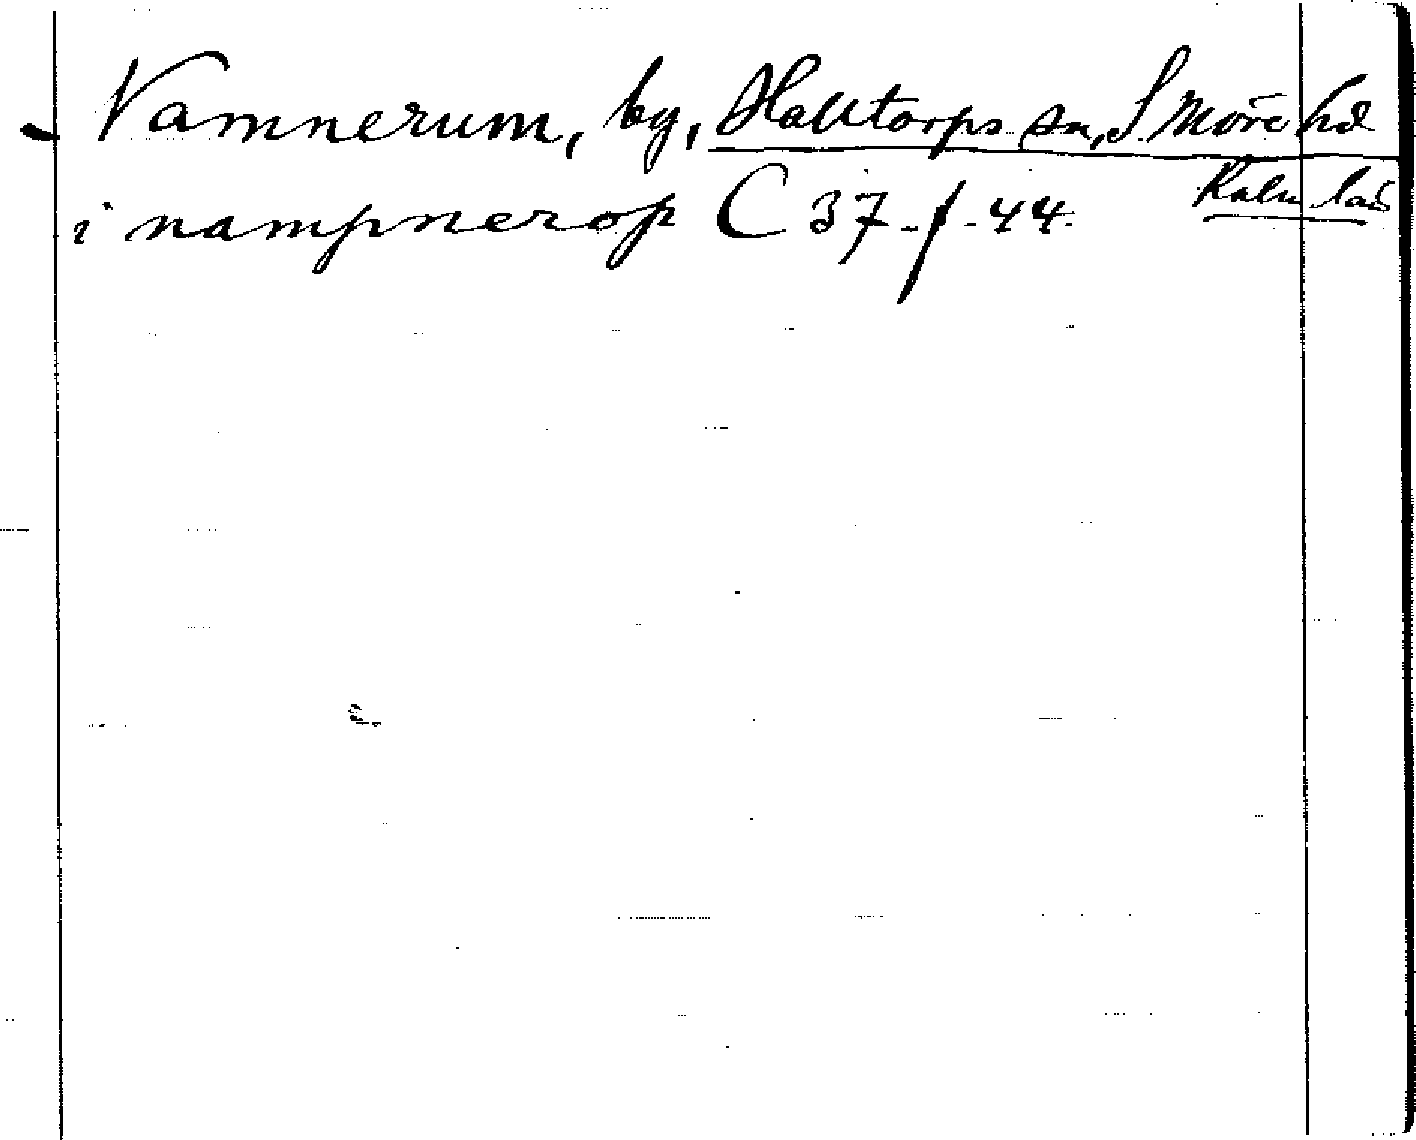 Vamnerum, by, Halltorps sn, S. Möre hd
Kalm län
i nampnerop C 37 f. 44.